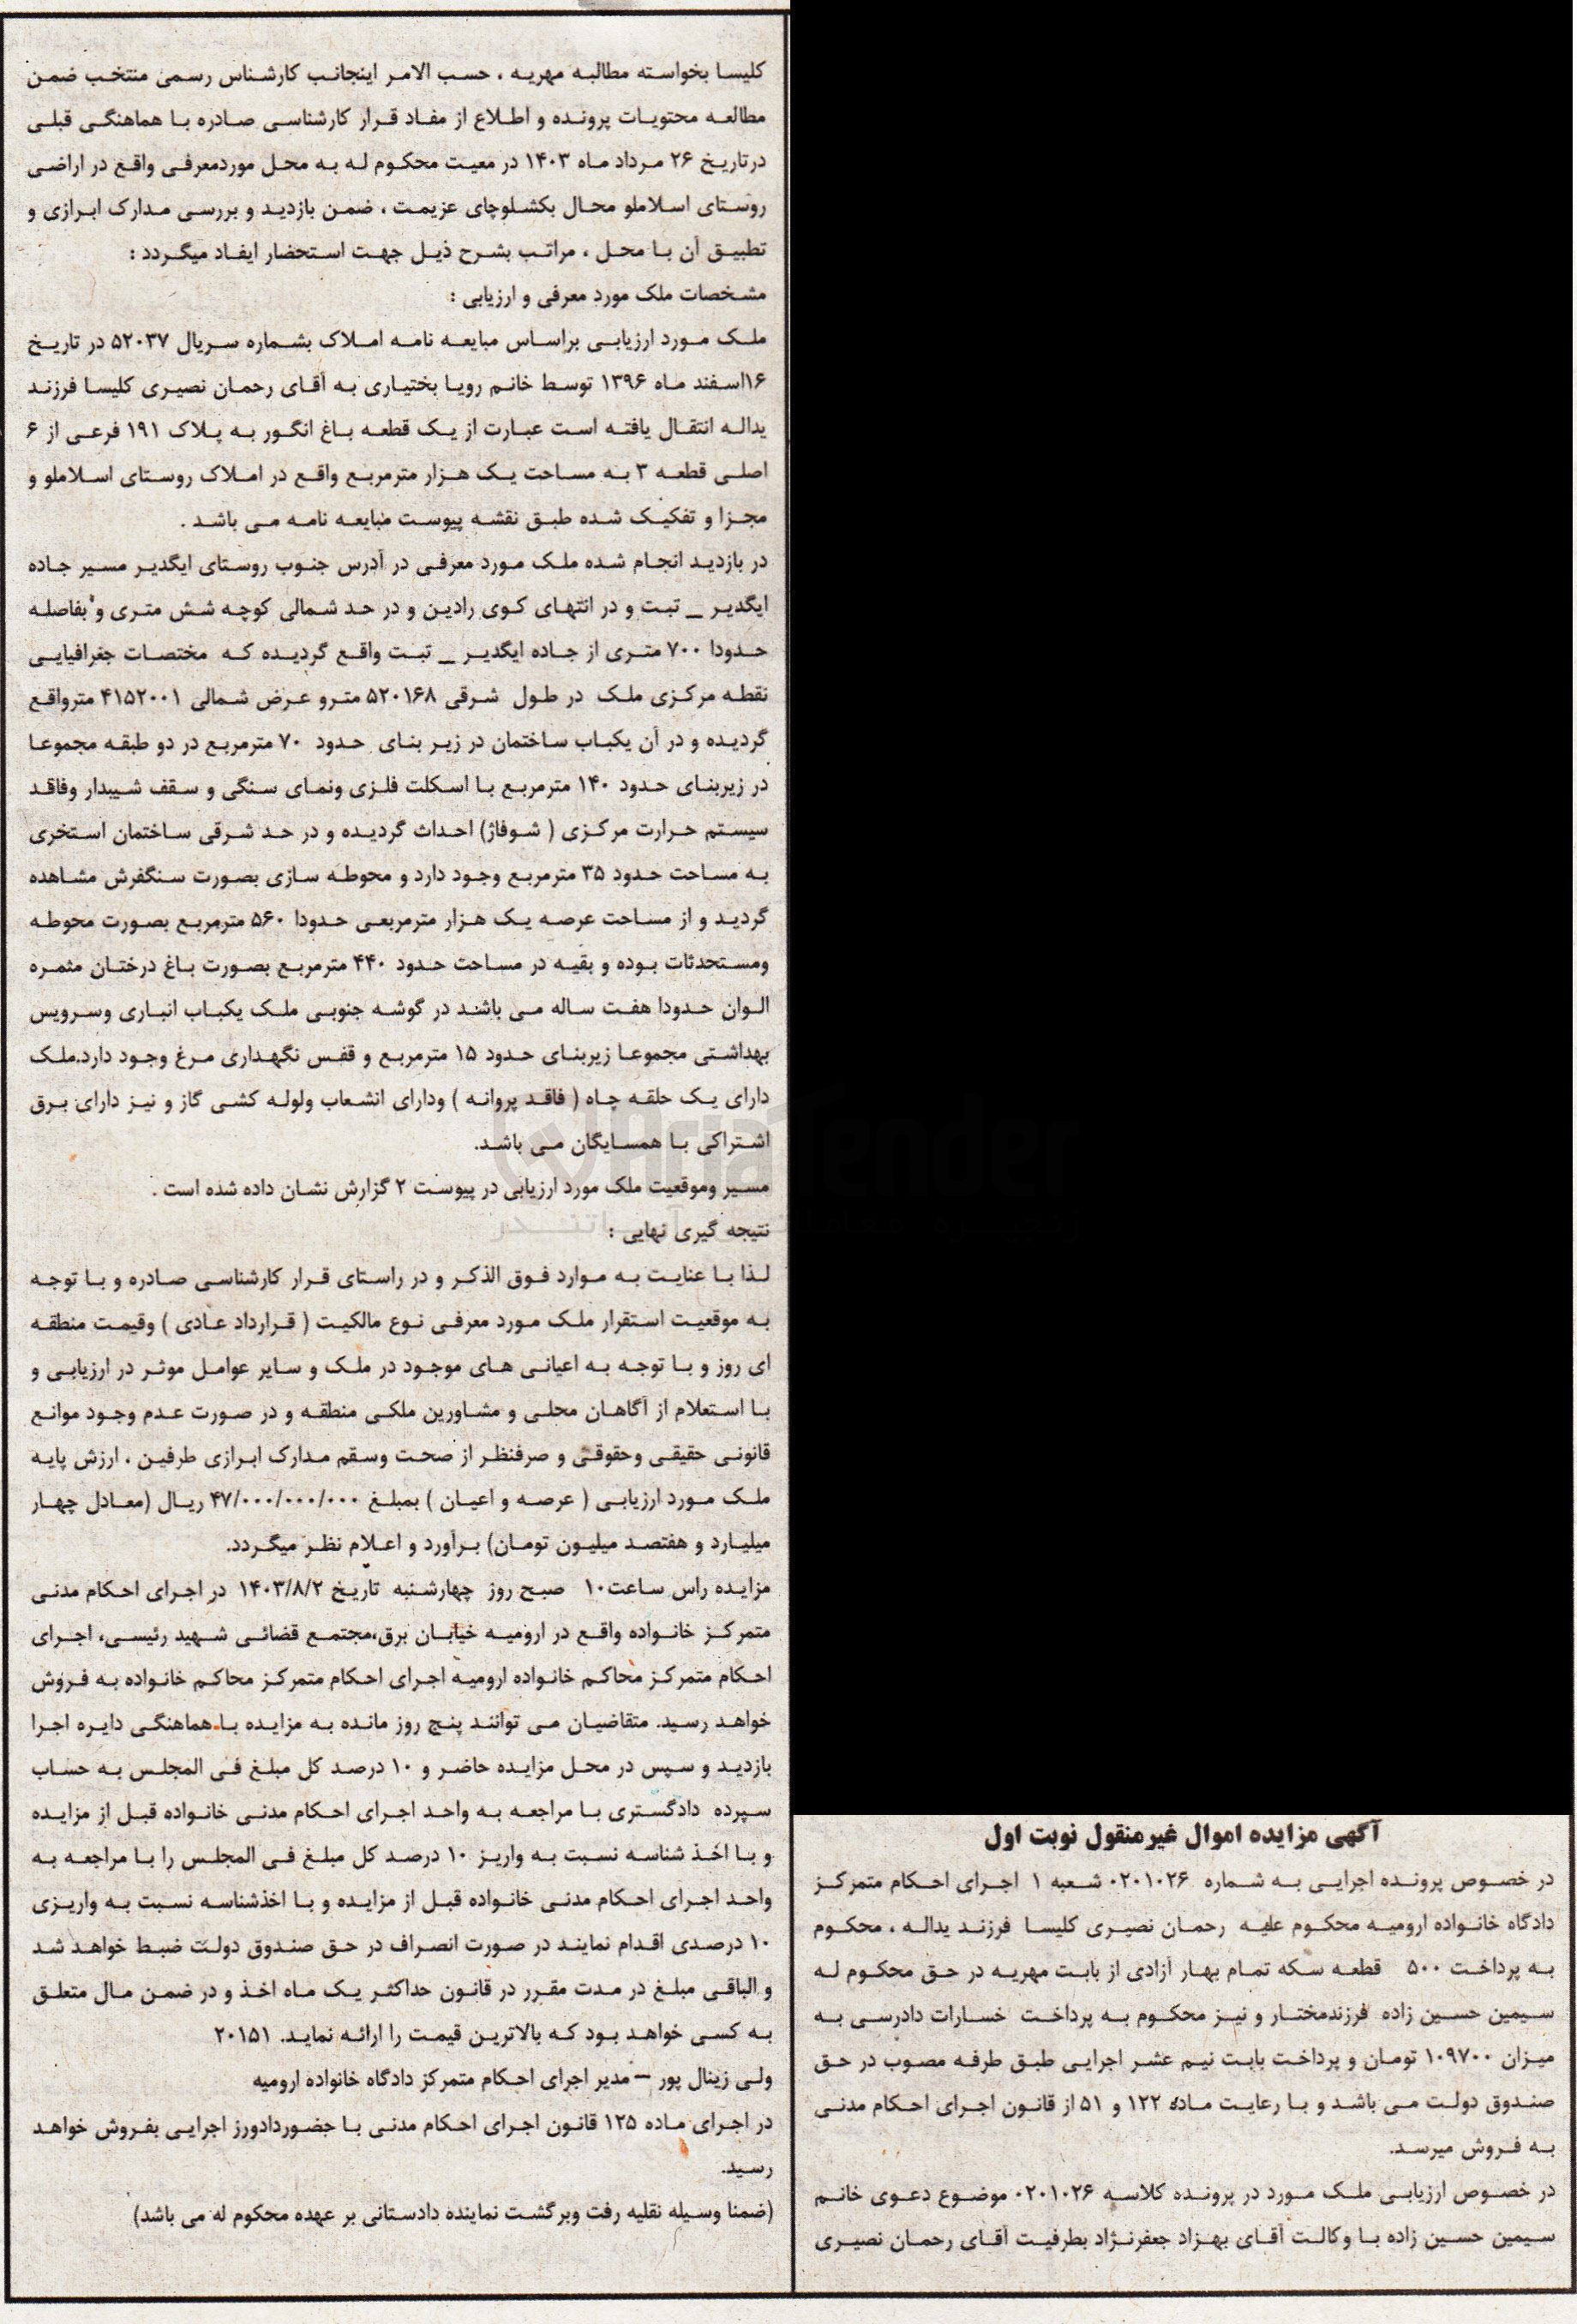 آگهی مزایده اموال غیرمنقول نوبت اول
در خصوص پرونده اجرایی به شماره ۰۲۰۱۰۲۶ شعبه ۱ اجرای احکام متمرکز
دادگاه خانواده ارومیه محکوم علیه رحمان نصیری کلیسا فرزند یداله ، محکوم
به پرداخت ۵۰۰ قطعه سکه تمام بهار آزادی از بابت مهریه در حق محکوم له
سیمین حسین زاده فرزندمختار و نیز محکوم به پرداخت خسارات دادرسی به
میزان ۱۰۹۷۰۰ تومان و پرداخت بابت نیم عشر اجرایی طبق طرفه مصوب در حق
صندوق دولت می باشد و با رعایت ماده ۱۲۲ و ۵۱ از قانون اجرای احکام مدنی
به فروش میرسد.
در خصوص ارزیابی ملک مورد در پرونده کلاسه ۰۲۰۱۰۲۶ موضوع دعوی خانم
سیمین حسین زاده با وکالت آقای بهزاد جعفرنژاد بطرفیت آقای رحمان نصیری
کلیسا بخواسته مطالبه مهریه ، حسب الامر اینجانب کارشناس رسمی منتخب ضمن
مطالعه محتویات پرونده و اطلاع از مفاد قرار کارشناسی صادره با هماهنگی قبلی
درتاریخ ۲۶ مرداد ماه ۱۴۰۳ در معیت محکوم له به محل موردمعرفی واقع در اراضی
روستای اسلاملو محال بکشلوچای عزیمت ، ضمن بازدید و بررسی مدارک ابرازی و
تطبیق آن با محل ، مراتب بشرح ذیل جهت استحضار ایفاد میگردد :
مشخصات ملک مورد معرفی و ارزیابی :
ملک مورد ارزیابی براساس مبایعه نامه املاک بشماره سریال ۵۲۰۳۷ در تاریخ
۱۶اسفند ماه ۱۳۹۶ توسط خانم رویا بختیاری به آقای رحمان نصیری کلیسا فرزند
یداله انتقال یافته است عبارت از یک قطعه باغ انگور به پلاک ۱۹۱ فرعی از ۶
اصلی قطعه ۳ به مساحت یک هزار مترمربع واقع در املاک روستای اسلاملو و
مجزا و تفکیک شده طبق نقشه پیوست مبایعه نامه می باشد .
در بازدید انجام شده ملک مورد معرفی در آدرس جنوب روستای ایگدیر مسیر جاده
ایگدیر _ تبت و در انتهای کوی رادین و در حد شمالی کوچه شش متری و بفاصله
حدودا ۷۰۰ متری از جاده ایگدیر _ تبت واقع گردیده که مختصات جغرافیایی
نقطه مرکزی ملک در طول شرقی ۵۲۰۱۶۸ مترو عرض شمالی ۴۱۵۲۰۰۱ مترواقع
گردیده و در آن یکباب ساختمان در زیر بنای حدود ۷۰ مترمربع در دو طبقه مجموعا
در زیربنای حدود ۱۴۰ مترمربع با اسکلت فلزی ونمای سنگی و سقف شیبدار وفاقد
سیستم حرارت مرکزی ( شوفاژ) احداث گردیده و در حد شرقی ساختمان استخری
به مساحت حدود ۳۵ مترمربع وجود دارد و محوطه سازی بصورت سنگفرش مشاهده
گردید و از مساحت عرصه یک هزار مترمربعی حدودا ۵۶۰ مترمربع بصورت محوطه
ومستحدثات بوده و بقیه در مساحت حدود ۴۴۰ مترمربع بصورت باغ درختان مثمره
الوان حدودا هفت ساله می باشند در گوشه جنوبی ملک یکباب انباری وسرویس
بهداشتی مجموعا زیربنای حدود ۱۵ مترمربع و قفس نگهداری مرغ وجود دارد.ملک
دارای یک حلقه چاه ( فاقد پروانه ) ودارای انشعاب ولوله کشی گاز و نیز دارای برق
اشتراکی با همسایگان می باشد.
مسیر وموقعیت ملک مورد ارزیابی در پیوست ۲ گزارش نشان داده شده است .
نتیجه گیری نهایی :
لذا با عنایت به موارد فوق الذکر و در راستای قرار کارشناسی صادره و با توجه
به موقعیت استقرار ملک مورد معرفی نوع مالکیت ( قرارداد عادی ) وقیمت منطقه
ای روز و با توجه به اعیانی های موجود در ملک و سایر عوامل موثر در ارزیابی و
با استعلام از آگاهان محلی و مشاورین ملکی منطقه و در صورت عدم وجود موانع
قانونی حقیقی وحقوقی و صرفنظر از صحت وسقم مدارک ابرازی طرفین ، ارزش پایه
ملک مورد ارزیابی ( عرصه و اعیان ) بمبلغ ۴۷/۰۰۰/۰۰۰/۰۰۰ ریال (معادل چهار
میلیارد و هفتصد میلیون تومان) برآورد و اعلام نظر میگردد.
مزایده راس ساعت۱۰ صبح روز چهارشنبه تاریخ ۱۴۰۳/۸/۲ در اجرای احکام مدنی
متمرکز خانواده واقع در ارومیه خیابان برق،مجتمع قضائی شهید رئیسی، اجرای
احکام متمرکز محاکم خانواده ارومیه اجرای احکام متمرکز محاکم خانواده به فروش
خواهد رسید. متقاضیان می توانند پنج روز مانده به مزایده با هماهنگی دایره اجرا
بازدید و سپس در محل مزایده حاضر و ۱۰ درصد کل مبلغ فی المجلس به حساب
سپرده دادگستری با مراجعه به واحد اجرای احکام مدنی خانواده قبل از مزایده
و با اخذ شناسه نسبت به واریز ۱۰ درصد کل مبلغ فی المجلس را با مراجعه به
واحد اجرای احکام مدنی خانواده قبل از مزایده و با اخذشناسه نسبت به واریزی
۱۰ درصدی اقدام نمایند در صورت انصراف در حق صندوق دولت ضبط خواهد شد
و الباقی مبلغ در مدت مقرر در قانون حداکثر یک ماه اخذ و در ضمن مال متعلق
به کسی خواهد بود که بالاترین قیمت را ارائه نماید. ۲۰۱۵۱
ولی زینال پور – مدیر اجرای احکام متمرکز دادگاه خانواده ارومیه
در اجرای ماده ۱۲۵ قانون اجرای احکام مدنی با حضوردادورز اجرایی بفروش خواهد
رسید.
(ضمنا وسیله نقلیه رفت وبرگشت نماینده دادستانی بر عهده محکوم له می باشد)
AriaTender